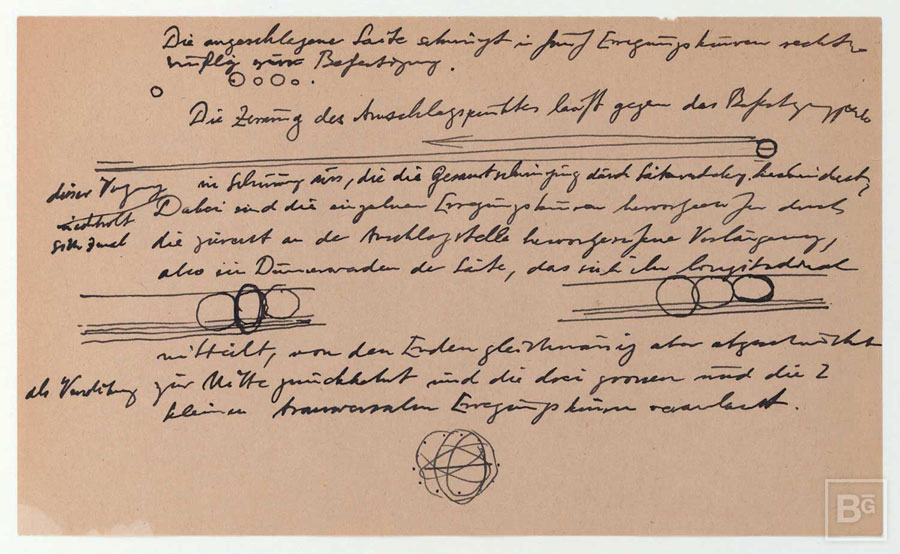 Die angeschlagene Saite schwingt in fünf Erregungskurven recht-
zur Befestigung.
Die Zerrung des Anschlagspunktes läuft gegen das
dieser Vorgang
wiederholt
sich
in aus, die die Gesamtschwingung durch
Dabei sind die einzelnen Erregungskurven hervorgerufen durch
die zuerst an der Anschlagstelle hervorgerufene Verlängerung,
also ein Dünnerwerden der Saite, das sich ihr longitudinal
mitteilt, von den Enden gleichmässig aber abgeschwächt
als Verdickung
zur Mitte zurückkehrt und die drei grossen und die 2
kleinen transversalen Erregungskurven veranlasst.
BG